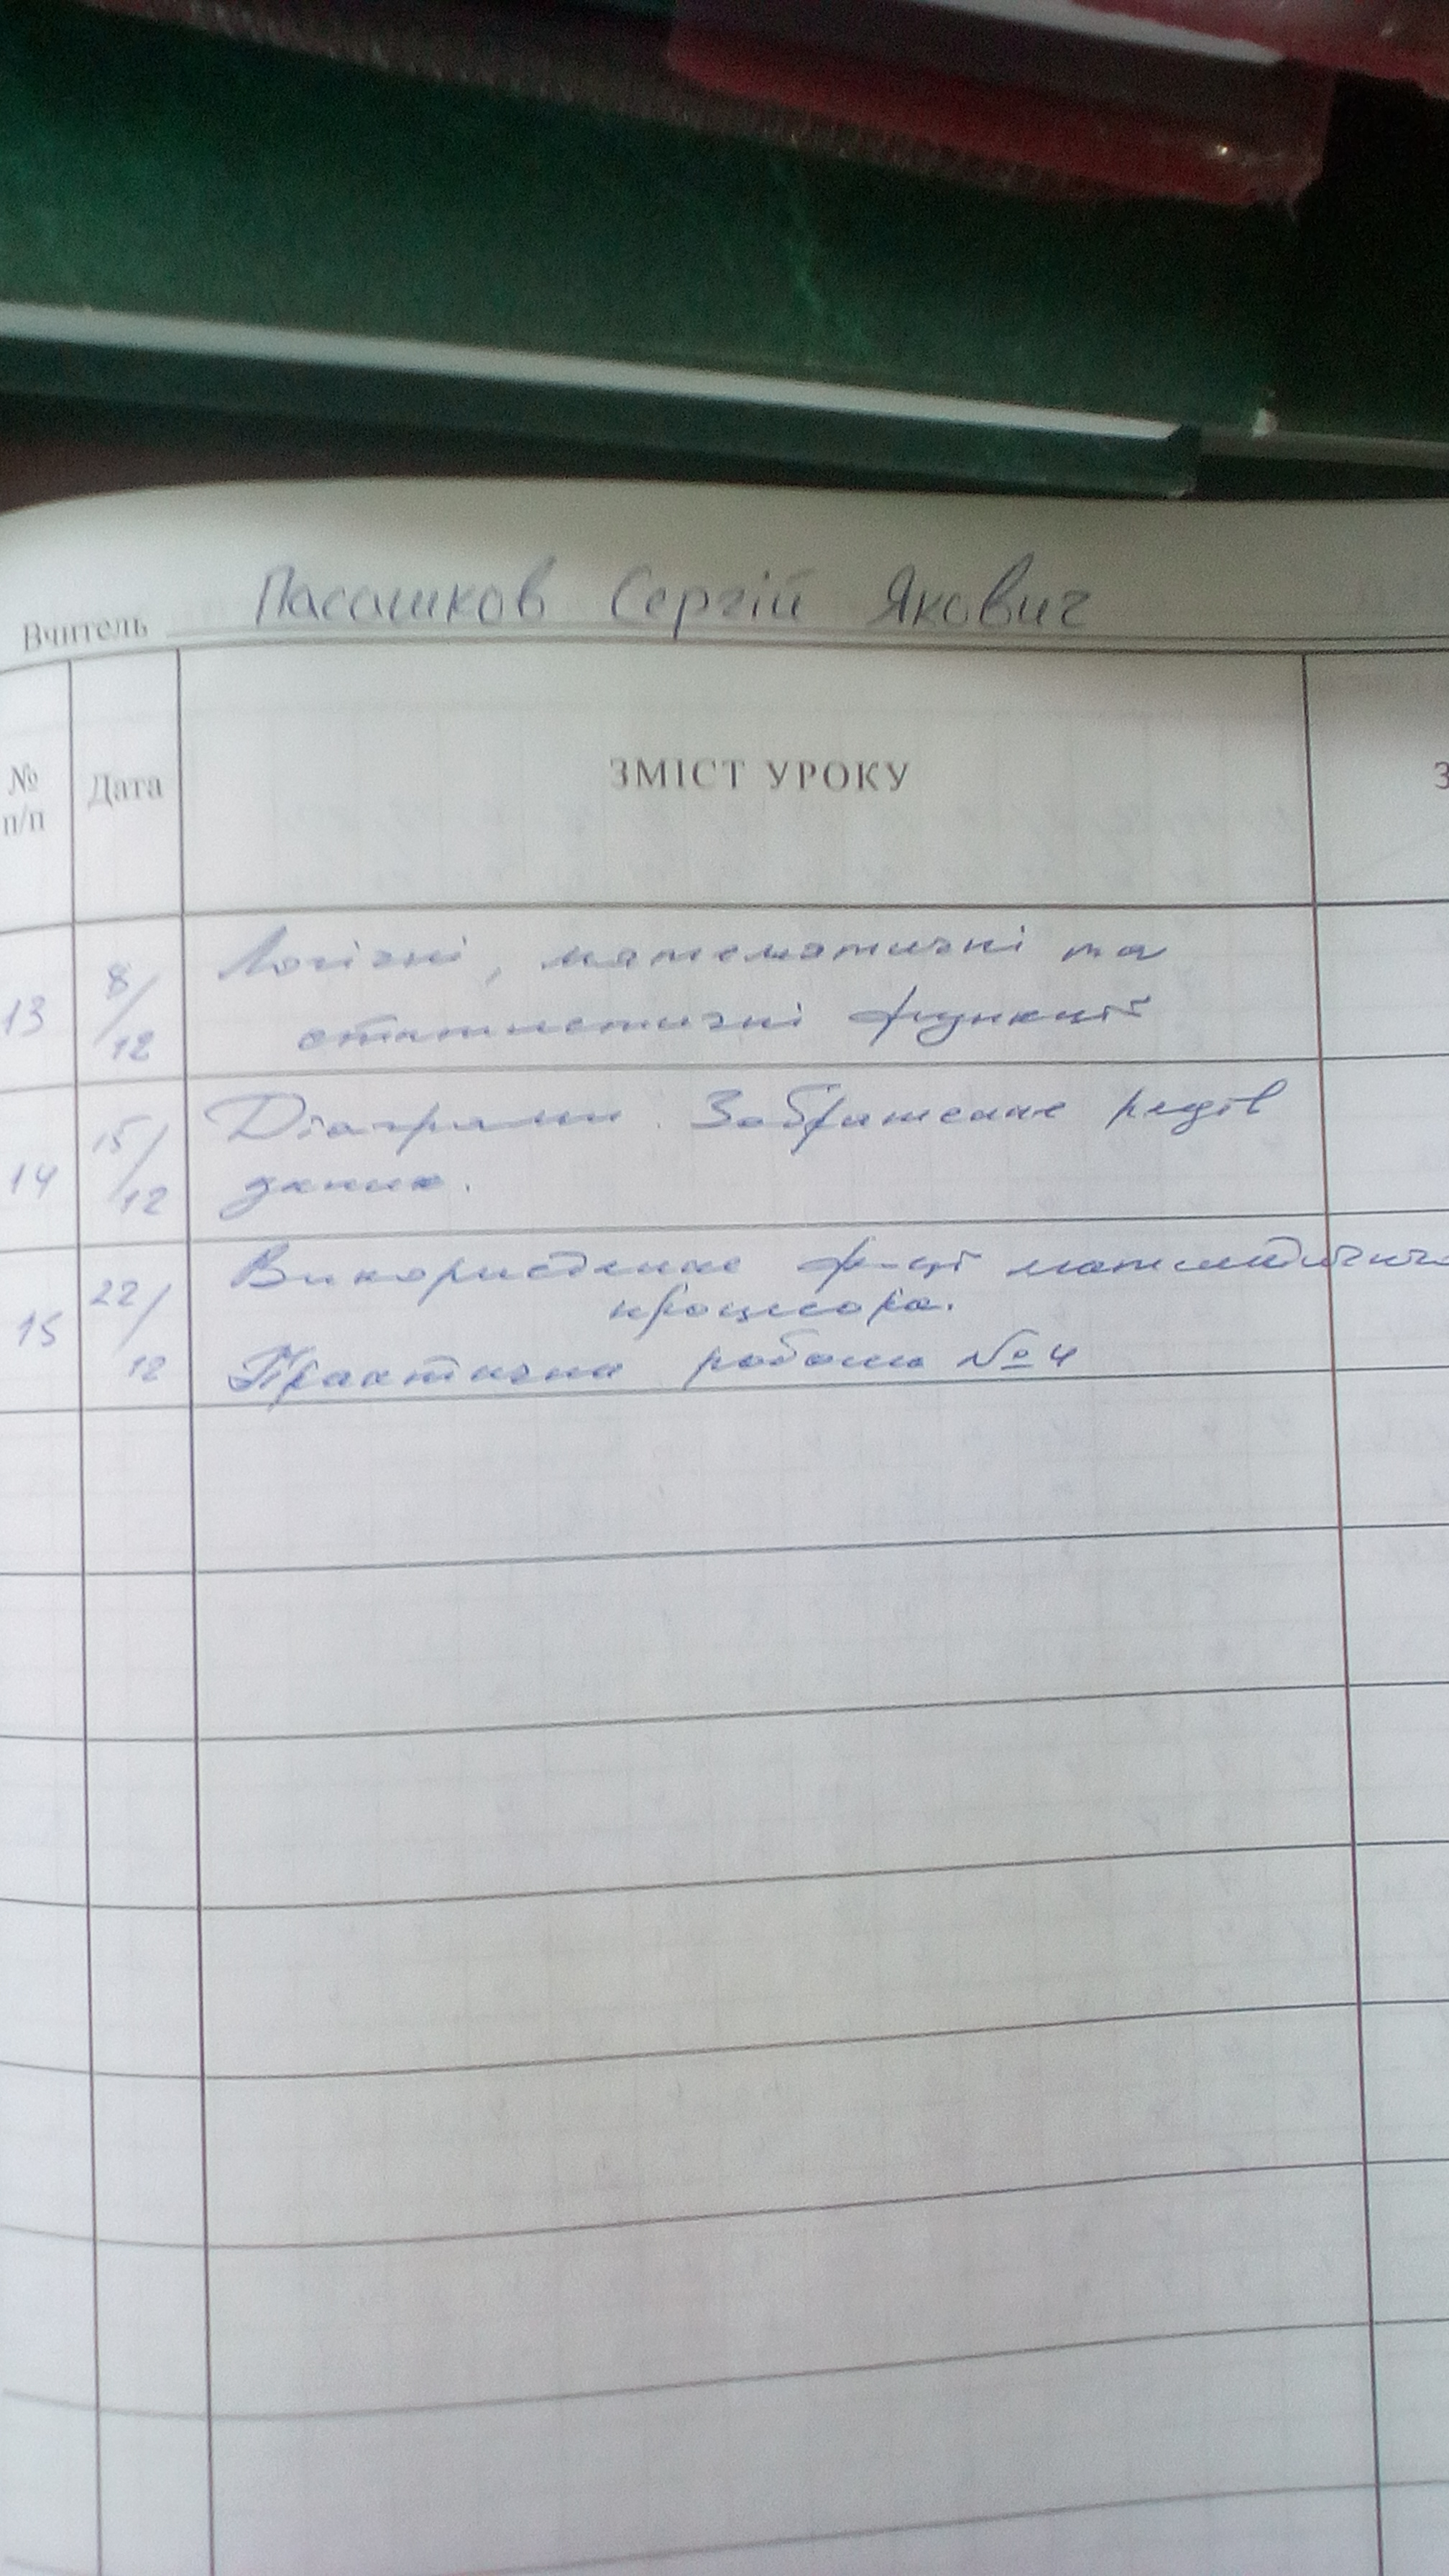 Вчитель Пасашков Сергій Якович
№ п/п Дата ЗМІСТ УРОКУ З
13 8/12 Логічні, математичні та
статистичні функції
14 15/12 Діаграми. Зображення рядів
даних.
15 22/12 Використання ф-цій
процесора.
Практична робота №4